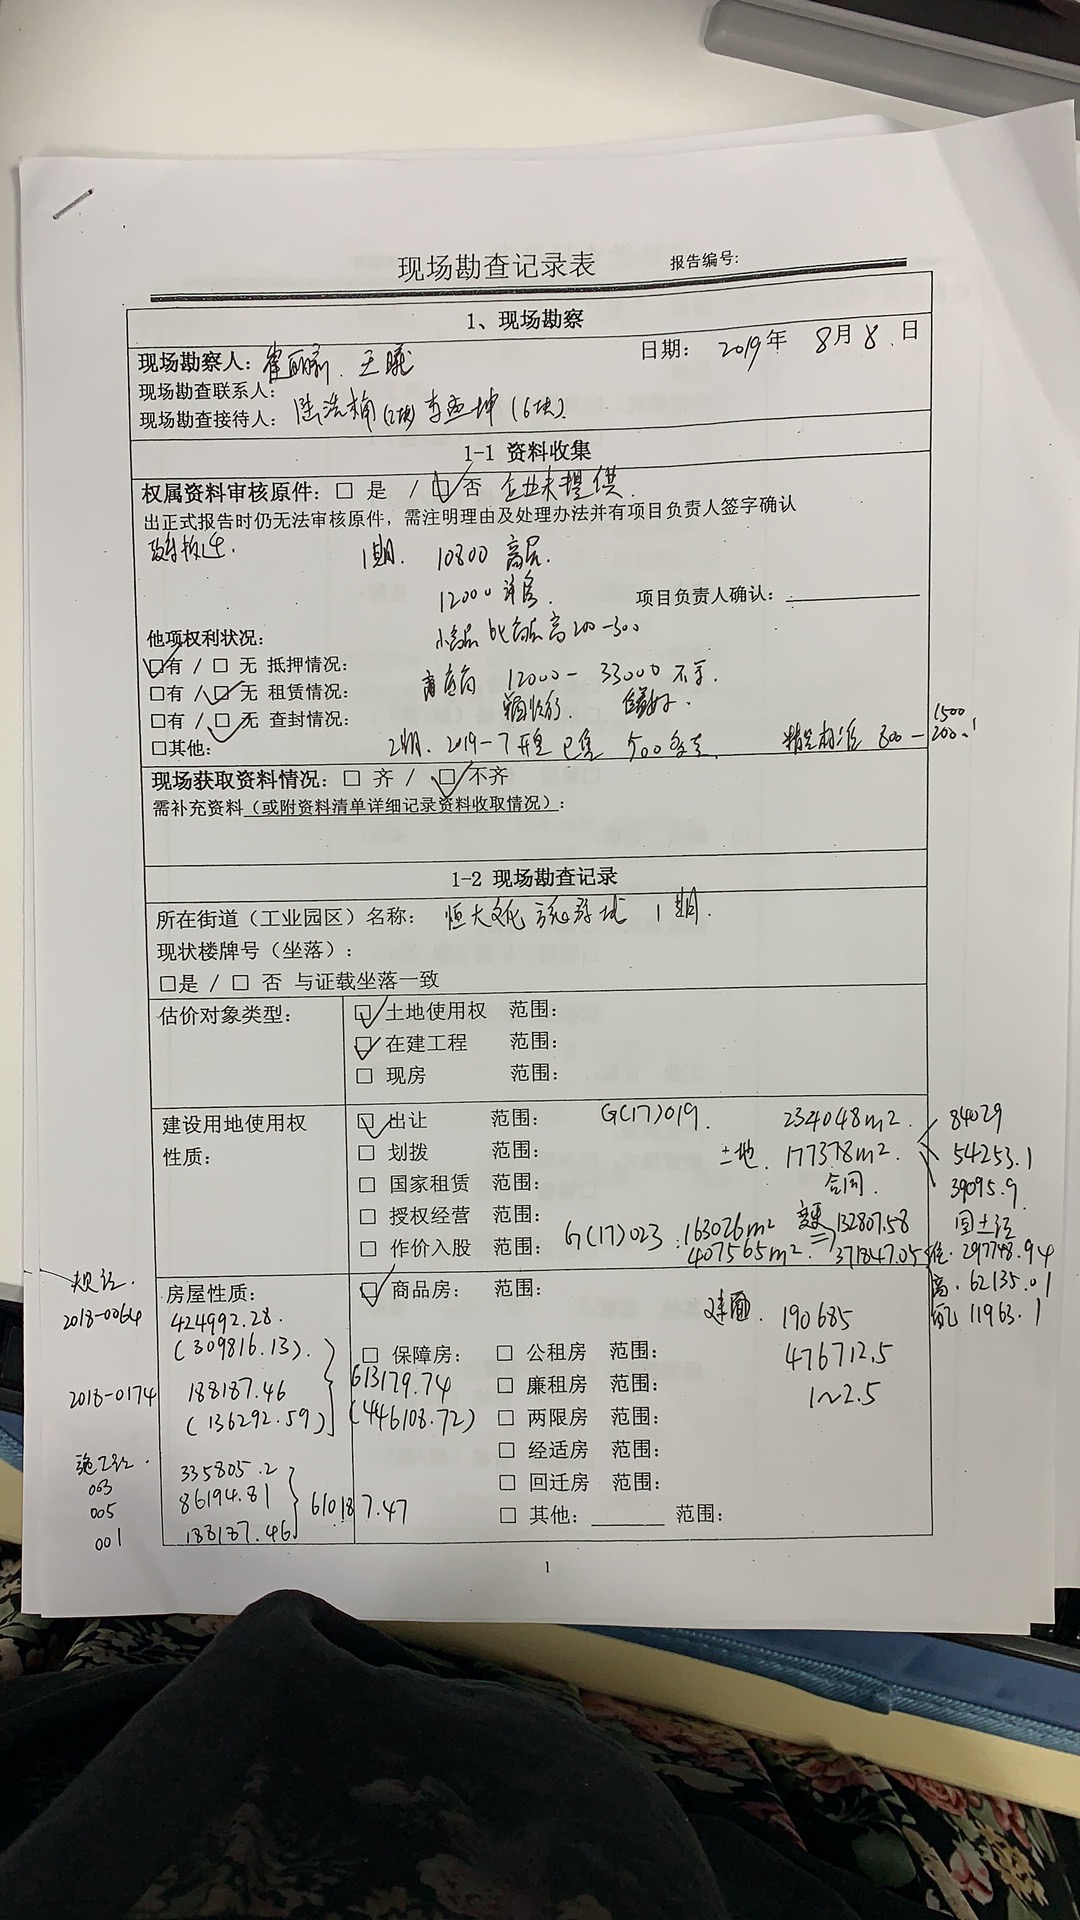 现场勘查记录表 报告编号:
1、现场勘察
现场勘察人: 王曦 日期: 2019年 8月 8日
现场勘查联系人:
现场勘查接待人: 陆浩楠 李亚坤 (6块)
1-1 资料收集
权属资料审核原件: □ 是 / □ 否 企业未提供.
出正式报告时仍无法审核原件, 需注明理由及处理办法并有项目负责人签字确认
1期. 10800 高层.
12000 洋房. 项目负责人确认:
小高层比高层高 200-300
他项权利状况:
□有 / □ 无 抵押情况:
12000 - 33000 不等.
□有 / □ 无 租赁情况:
□有 / □ 无 查封情况:
2期. 2019-7 开盘 已售 500多 精装标准 800- 1500
2000.
□其他:
现场获取资料情况: □ 齐 / □ 不齐
需补充资料(或附资料清单详细记录资料收取情况):
1-2 现场勘查记录
所在街道(工业园区)名称: 恒大文化旅游城 1期.
现状楼牌号(坐落):
□是 / □ 否 与证载坐落一致
估价对象类型: □ 土地使用权 范围:
□ 在建工程 范围:
□ 现房 范围:
建设用地使用权性质: □ 出让 范围: G(17)019. 234048m². 84029
□ 划拨 范围: 土地. 177378m². 54253.1
□ 国家租赁 范围: 合同. 39095.9
□ 授权经营 范围: 163026m² 132807.58 国土证
□ 作价入股 范围: G(17)023: 407565m². 371847.05 297748.94
高. 62135.01
配 11963.1
房屋性质: □ 商品房: 范围:
规证.
2018-0064 424992.28. 建面. 190685
(309816.13). □ 保障房: □ 公租房 范围: 476712.5
2018-0174 188187.46 613179.74 □ 廉租房 范围: 1~2.5
(136292.59) (446108.72) □ 两限房 范围:
□ 经适房 范围:
施工证. 335805.2 □ 回迁房 范围:
003
005 86194.81 610187.47 □ 其他: 范围:
001 188187.46
1